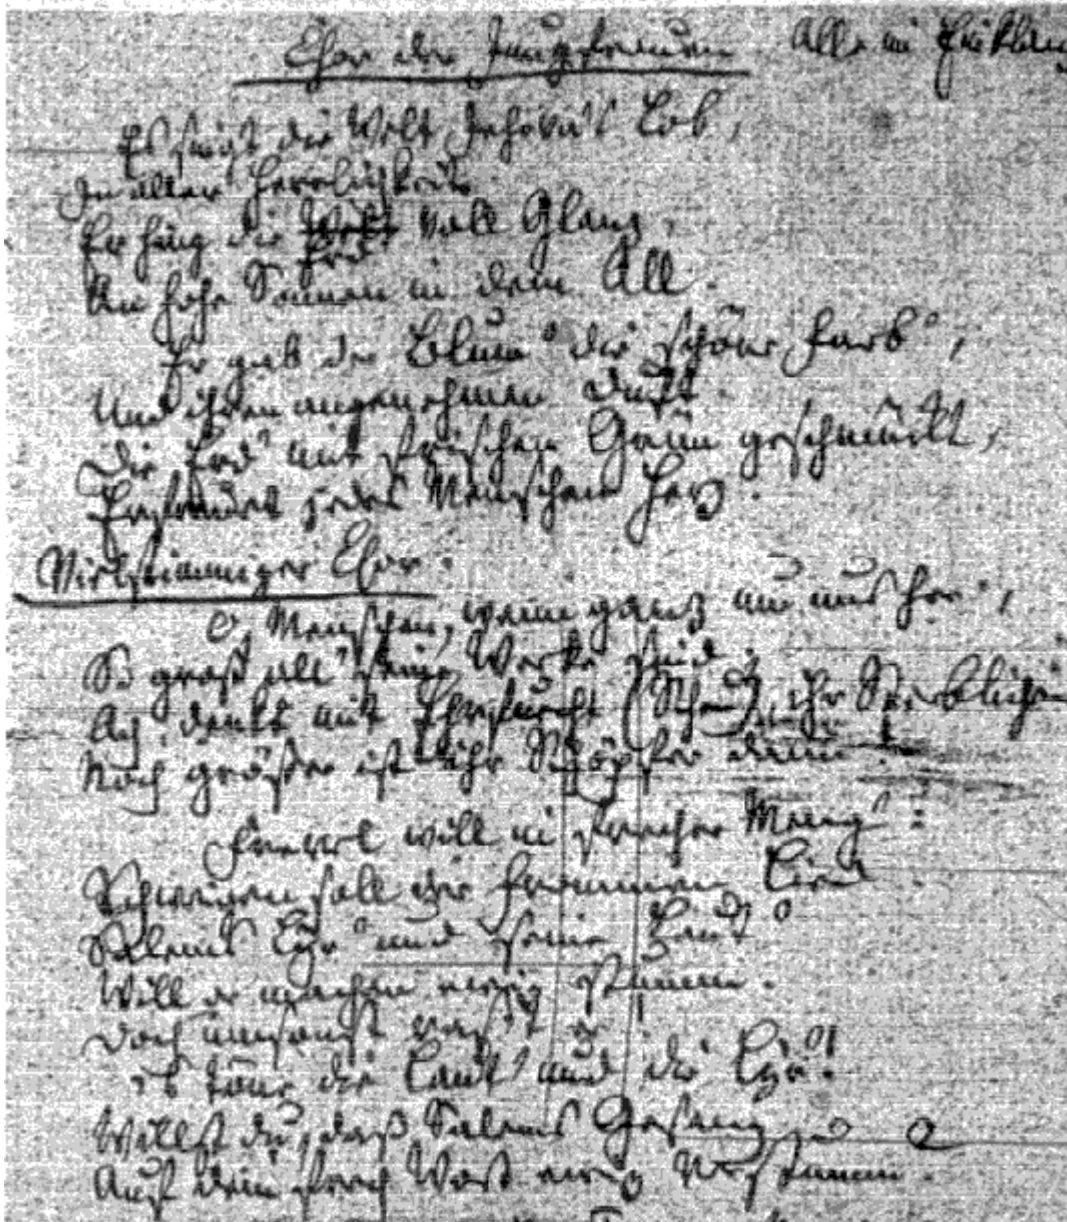 Chor der Jungfrauen Alle im Einklang
Es singt die Welt Jehova's Lob,
In aller Herrlichkeit
Er hing die Welt Erd voll Glanz,
An hohe Sonnen in dem All.
Er gab der Blum' die schöne Farb',
Und ihren angenehmen Duft.
Die Erd' mit frischem Grün geschmückt,
Erfreuet jedes Menschen Herz.
Vielstimmiger Chor.
O, Menschen, wenn ganz um uns her,
So groß all' seine Werke sind,
Ach denkt mit Ehrfurcht (Scheu) ihr Sterblichen
Noch größer ist ihr Schöpfer dann
Frevel will in frecher Meng':
Schweigen soll der Frommen Lied
Salems Lyr' und seine Laut'
Will er machen ewig stumm.
Doch umsonst rast er!
es töne die Laut' und die Lyr'!
Willst du, daß Salems Gesang
Auf dein frech Wort ewig verstumm.